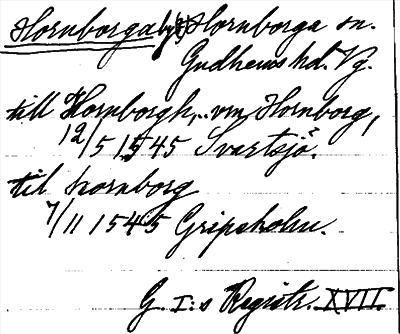 Hornborgaby, Hornborga sn.
Gudhems hd. Vg.
till Hornborgh, .. vm Hornborg,
12/5 1545 Svartsjö.
til hornborg
7/11 1545 Gripsholm.
G. I:s Registr. XVII